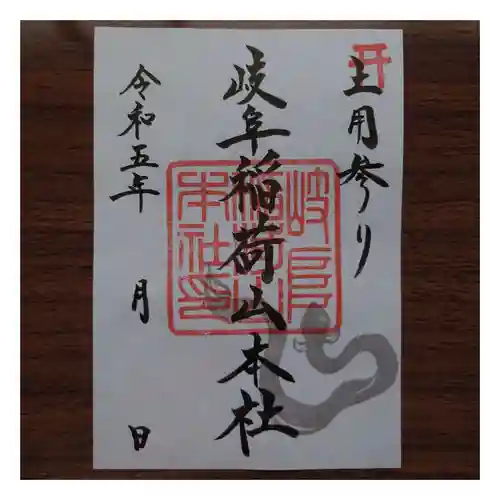 土用参り
岐阜稲荷山本社
岐阜
稲荷山
本社印
令和五年 月 日